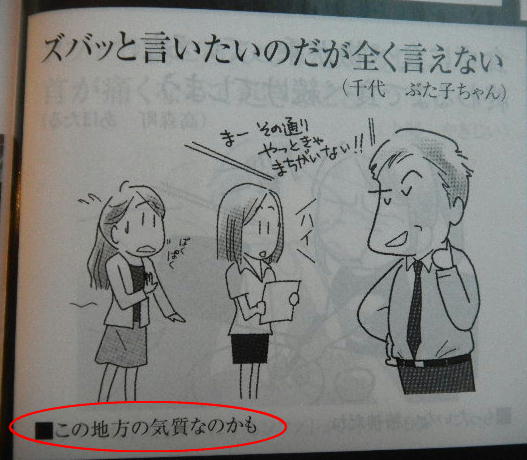 ズバッと言いたいのだが全く言えない
（千代　ぶた子ちゃん）
まー その通り
やっときゃ
まちがいない!!
ハイ
ぱく
ぱく
■この地方の気質なのかも